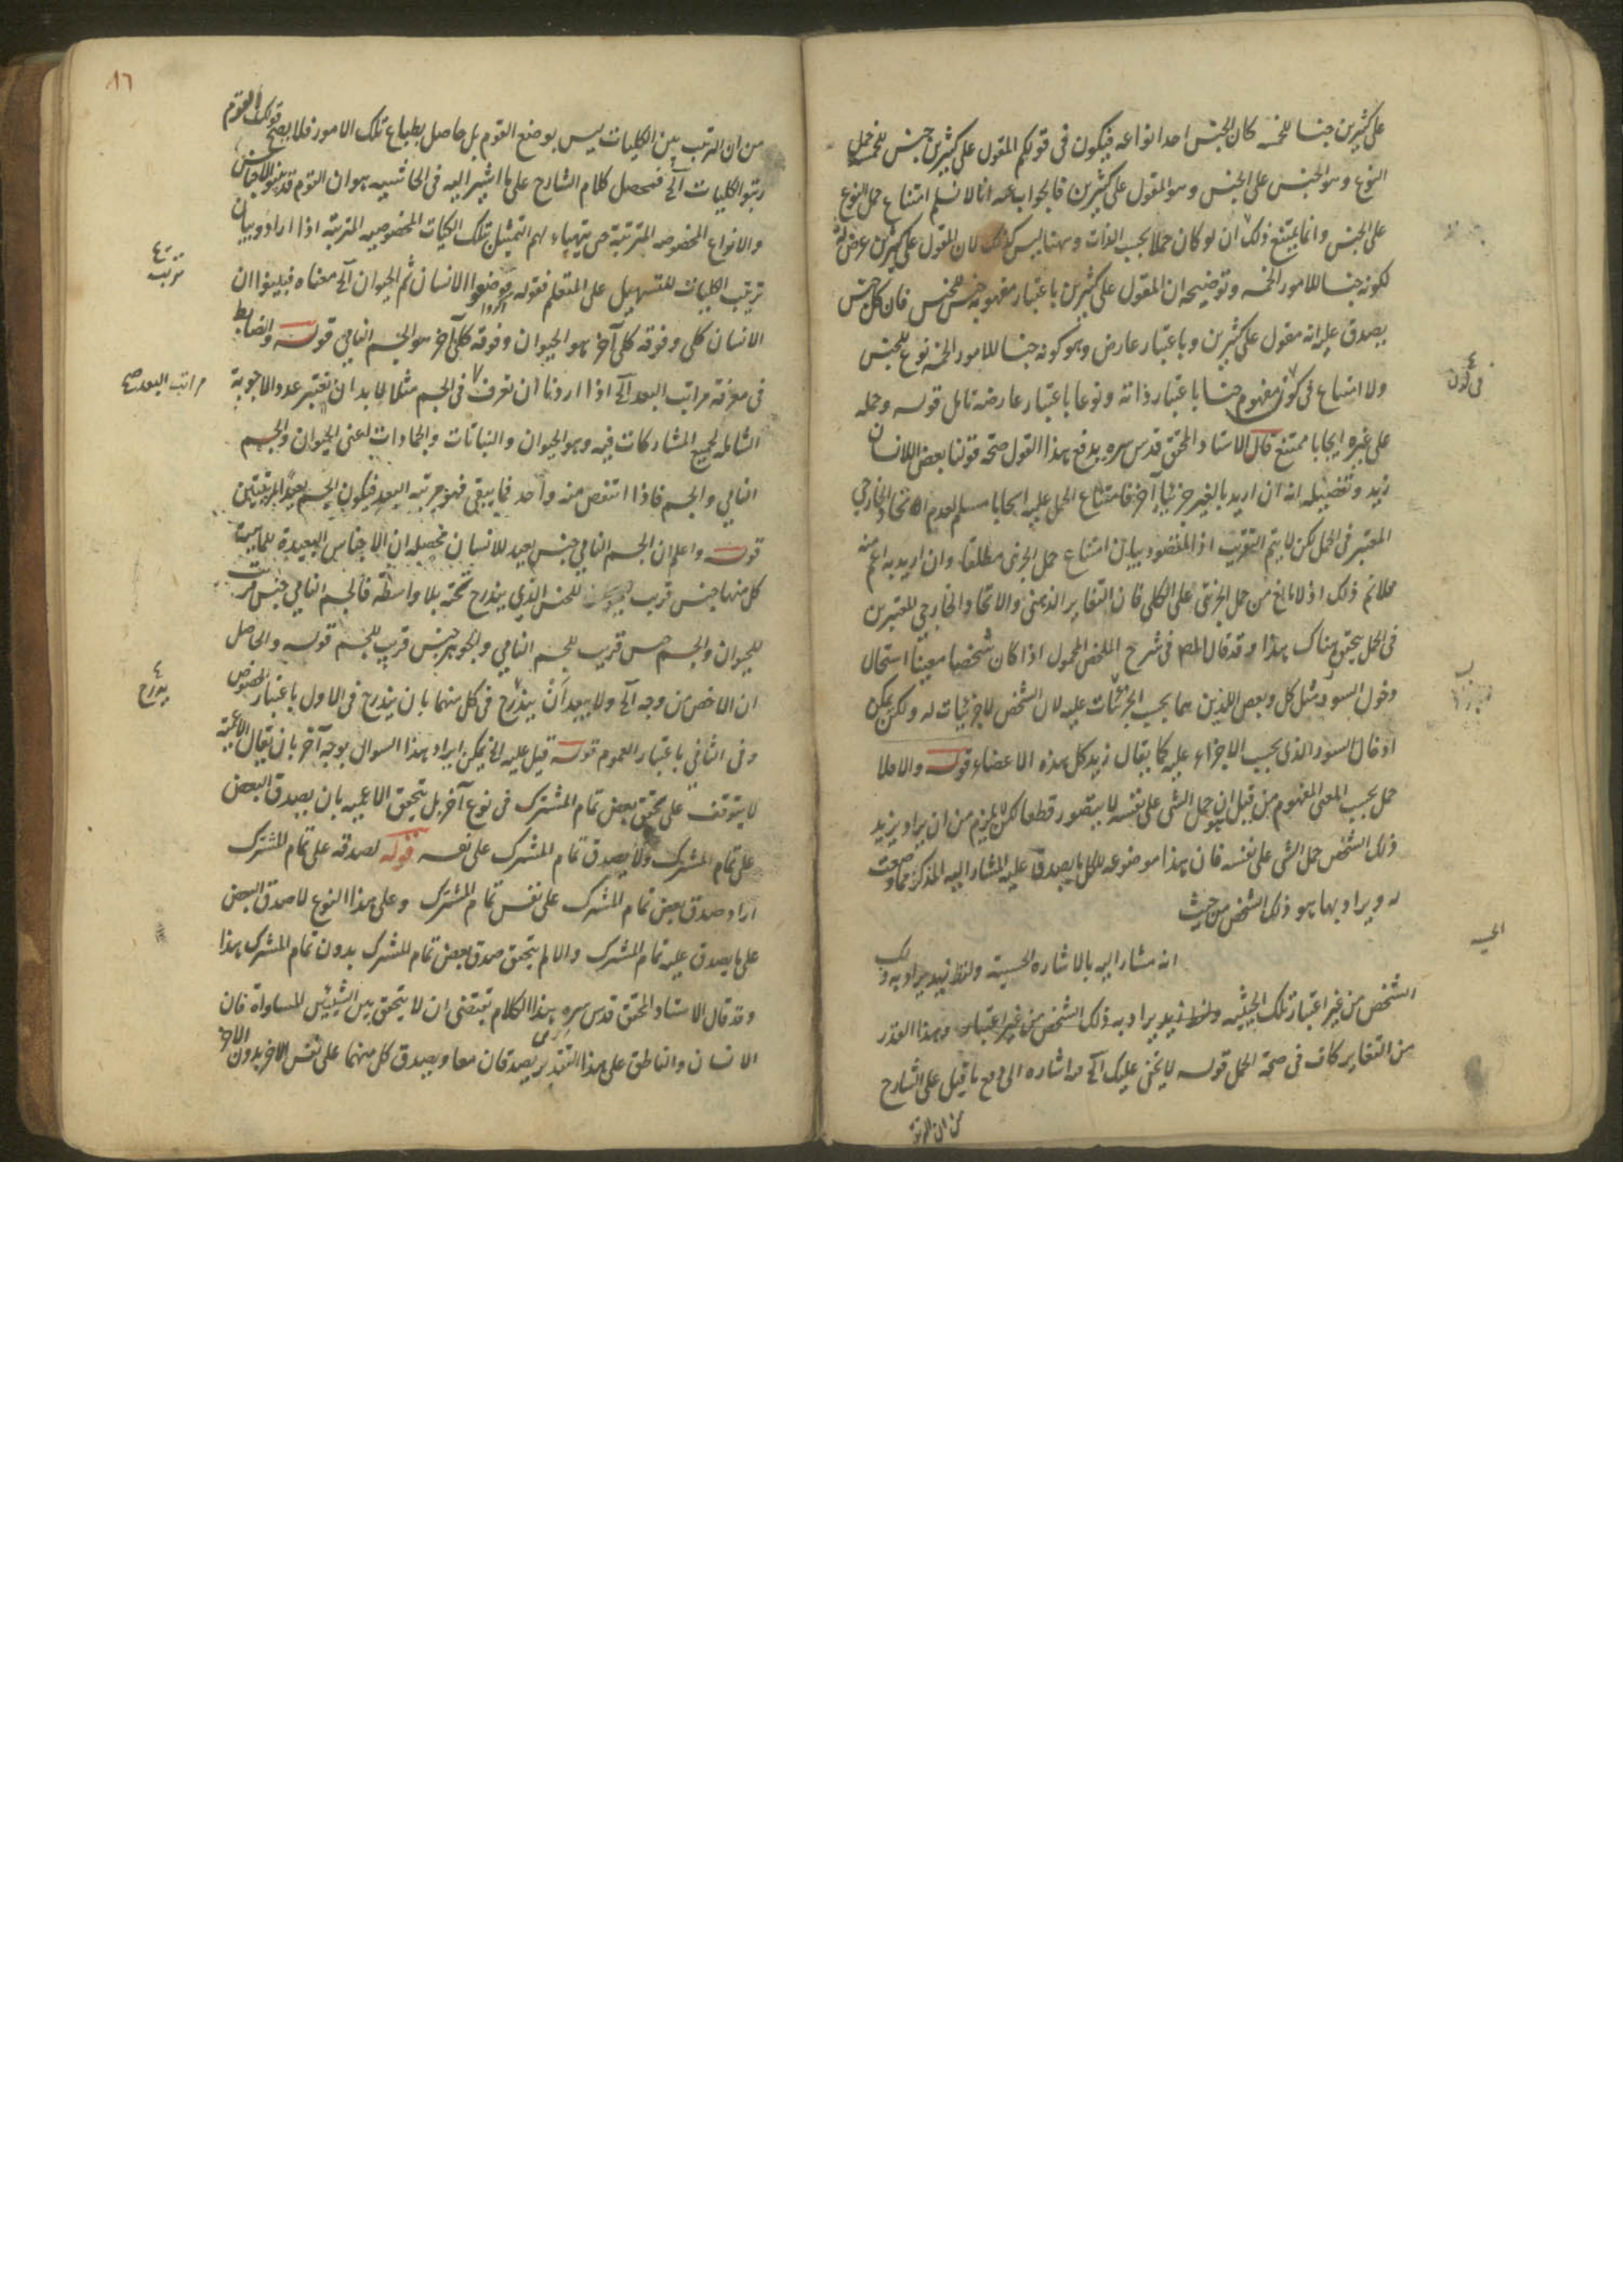 على كثيرين جنسا للخمسة كان الجنس احد انواعه فيكون فى قولكم المقول على كثيرين جنس للخمسة حمل
النوع وهو الجنس على الجنس وهو المقول على كثيرين فالجواب عنه انا لا نسلم امتناع حمل النوع
على الجنس وانما يمتنع ذلك ان لو كان حملا بحسب الذات وههنا ليس كذلك لان المقول على كثيرين عرض له
لكونه جنسا للامور الخمسة وتوضيحه ان المقول على كثيرين باعتبار مفهومه جنس للجنس فان كل جنس
يصدق عليه انه مقول على كثيرين وباعتبار عارض وهو كونه جنسا للامور الخمسة نوع للجنس
ولا امتناع فى كون مفهوم جنسا باعتبار ذاته ونوعا باعتبار عارضه تامل قوله وحمله
على غيره ايجابا ممتنع قال الاستاد المحقق قدس سره يدفع هذا القول صحة قولنا بعض الانسان
زيد وتفصيله انه ان اريد بالغير جزئيا آخر فامتناع الحمل عليه ايجابا مسلم لعدم الاتحاد الخارجي
المعتبر فى الحمل لكن لا يتم التقريب اذ المقصود بيان امتناع حمل الجزئى مطلقا وان اريد به اعم منه
فلا نم ذلك اذ لا مانع من حمل الجزئى على الكلى فان التغاير الذهنى والاتحاد الخارجي المعتبرين
فى الحمل يتحقق هناك هذا وقد قال المص فى شرح الملخص المحمول اذا كان شخصيا معينا استحال
دخول السور مثل كل وبعض اللذين هما بحسب الجزئيات عليه لان الشخص لا جزئيات له ولكن يمكن
ادخال السور الذى بحسب الاجزاء عليه كما يقال زيد كل هذه الاعضاء قوله والا فلا
حمل بحسب المعنى المفهوم من قبل ان حمل الشى على نفسه لا يتصور قطعا لكن لا يلزم من ان يراد بزيد
ذلك الشخص حمل الشى على نفسه فان هذا موضوعه لكل ما يصدق عليه المشار اليه المذكر فما وضعت
له ويراد بها هو ذلك الشخص من حيث
انه مشار اليه بالاشاره الحسية ولفظ زيد يراد به ذلك
الشخص من غير اعتبار تلك الحيثية ولفظ زيد يراد به ذلك الشخص من غير اعتبار وهذا القدر
من التغاير كاف فى صحة الحمل قوله لا يخفى عليك آلخ اشاره الى دفع ما قيل على الشارح
من ان الترتيب
فى كون
الحسية
٨٦
من ان الترتيب بين الكليات ليس بوضع القوم بل حاصل بطباع تلك الامور فلا يصح قولك القوم
رتبوا الكليات آلخ فمحصل كلام الشارح على ما اشير اليه فى الحاشيه هو ان القوم قد بينوا الاجناس
والانواع المخصوصه المترتبة حتى يتهياء لهم التمثيل بتلك الكليات المخصوصيه المترتبة اذا ارادوا بيان
ترتيب الكليات للتسهيل على المتعلم فقوله فوضعوا الانسان ثم الحيوان آلخ معناه فبينوا ان
الانسان كلى وفوقه كلى آخر هو الحيوان وفوقه كلى آخر هو الجسم النامي قوله والضابط
فى معرفة مراتب البعد آلخ اذا اردنا ان نعرف فى الجسم مثلا لا بد ان نعتبر عدد الاجوبة
الشاملة لجميع المشاركات فيه وهو الحيوان والنباتات والجمادات اعنى الحيوان والجسم
النامي والجسم فاذا انتقص منه واحد فما يبقى فهو مرتبه البعد فيكون الجسم بعيدا بمرتبتين
قوله واعلم ان الجسم النامي جنس بعيد للانسان محصله ان الاجناس البعيدة للماهية
كل منها جنس قريب للجنس الذي يندرج تحته بلا واسطه فالجسم النامي جنس قريب
للحيوان والجسم جنس قريب للجسم النامي والجوهر جنس قريب للجسم قوله والحاصل
ان الاخص من وجه آلخ ولا يبعد ان يندرج فى كل منهما بان يندرج فى الاول باعتبار الخصوص
وفى الثاني باعتبار العموم قوله قيل عليه الخ يمكن ايراد هذا السوال بوجه آخر بان يقال الاعمية
لا يتوقف على تحقق بعض تمام المشترك فى نوع آخر بل يتحقق الاعميه بان يصدق البعض
على تمام المشترك ولا يصدق تمام المشترك على نفسه قوله لصدقه على تمام المشترك
اراد صدق بعض تمام المشترك على نفس تمام المشترك وعلى هذا النوع لا صدق البعض
على ما يصدق عليه تمام المشترك والا لم يتحقق صدق بعض تمام المشترك بدون تمام المشترك هذا
وقد قال الاستاد المحقق قدس سره هذا الكلام يقتضى ان لا يتحقق بين الشيئين المساواة فان
الانسان والناطق على هذا التقدير يصدقان معا ويصدق كل منهما على نفس الاخر بدون الاخر
ترتيب
مراتب البعد صح
يندرج